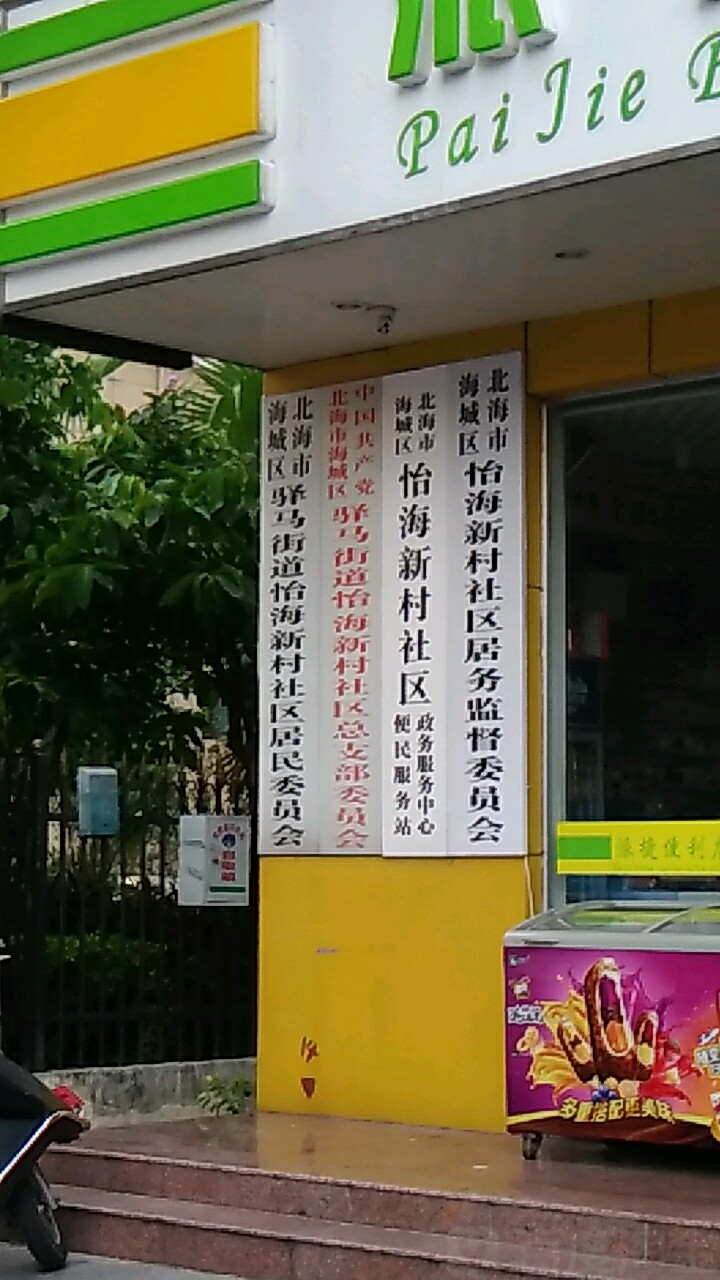 派
Pai Jie
北海市
海城区
驿马街道怡海新村社区居民委员会
中国共产党
北海市海城区
驿马街道怡海新村社区总支部委员会
北海市
海城区
怡海新村社区
政务服务中心
便民服务站
北海市
海城区
怡海新村社区居务监督委员会
派捷便利
多重搭配更美味